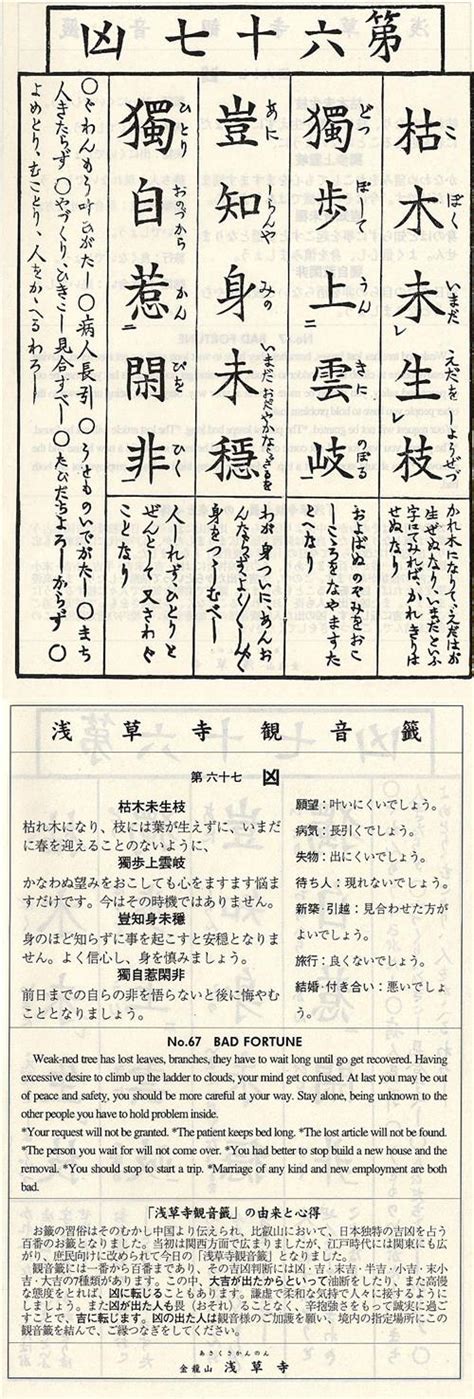 第六十七凶
枯木未生枝
こ ぼく いまだ えだを しようぜず
レ
かれ木になりて、えだはがゝ
生ぜぬなり、いまだといふ
字にてみれば、かれきりは
せぬなり
獨歩上雲岐
どつ ぽして うん きに のぼる
二 一
およばぬのぞみをおこ
しこころをなやますた
とへなり
豈知身未穏
あに しらんや みの いまだ おだやかならざるを
わが身ついに、あんお
身をつゝしむべし
獨自惹閑非
ひとり おのづから かん ぴを ひく
二 一
人しれず、ひとりと
ぜんとして 又さわぐ
ことなり
○ぐわんもう叶ひがたし ○病人長引 ○うせものいでがたし ○まち
人きたらず ○やづくり、ひきこし見合すべし ○たびだちよろしからず ○
よめとり、むことり、人をかゝへるわろし
浅草寺観音籤
第六十七 凶
枯木未生枝
枯れ木になり、枝には葉が生えずに、いまだ
に春を迎えることのないように、
獨歩上雲岐
かなわぬ望みをおこしても心をますます悩ま
すだけです。今はその時機ではありません。
豈知身未穩
身のほど知らずに事を起こすと安穏となりま
せん。よく信心し、身を慎みましょう。
獨自惹閑非
前日までの自らの非を悟らないと後に悔やむ
こととなりましょう。
願望：叶いにくいでしょう。
病気：長引くでしょう。
失物：出にくいでしょう。
待ち人：現れないでしょう。
新築・引越：見合わせた方が
よいでしょう。
旅行：良くないでしょう。
結婚・付き合い：悪いでしょ
う。
No.67 BAD FORTUNE
Weak-ned tree has lost leaves, branches, they have to wait long until go get recovered. Having
excessive desire to climb up the ladder to clouds, your mind get confused. At last you may be out
of peace and safety, you should be more careful at your way. Stay alone, being unknown to the
other people you have to hold problem inside.
*Your request will not be granted. *The patient keeps bed long. *The lost article will not be found.
*The person you wait for will not come over. *You had better to stop build a new house and the
removal. *You should stop to start a trip. *Marriage of any kind and new employment are both
bad.
「浅草寺観音籤」の由来と心得
お籤の習俗はそのむかし中国より伝えられ、比叡山において、日本独特の吉凶を占う
百番のお籤となりました。当初は関西方面で広まりましたが、江戸時代には関東にも広
がり、庶民向けに改められて今日の「浅草寺観音籤」となりました。
観音籤には一番から百番まであり、その吉凶判断には凶・吉・末吉・半吉・小吉・末小
吉・大吉の7種類があります。この中、大吉が出たからといって油断をしたり、また高慢
な態度をとれば、凶に転じることもあります。謙虚で柔和な気持で人々に接するように
しましょう。また凶が出た人も畏（おそれ）ることなく、辛抱強さをもって誠実に過ご
すことで、吉に転じます。凶の出た人は観音様のご加護を願い、境内の指定場所にこの
観音籤を結んで、ご縁つなぎをしてください。
あさくさかんのん
金龍山 浅草寺